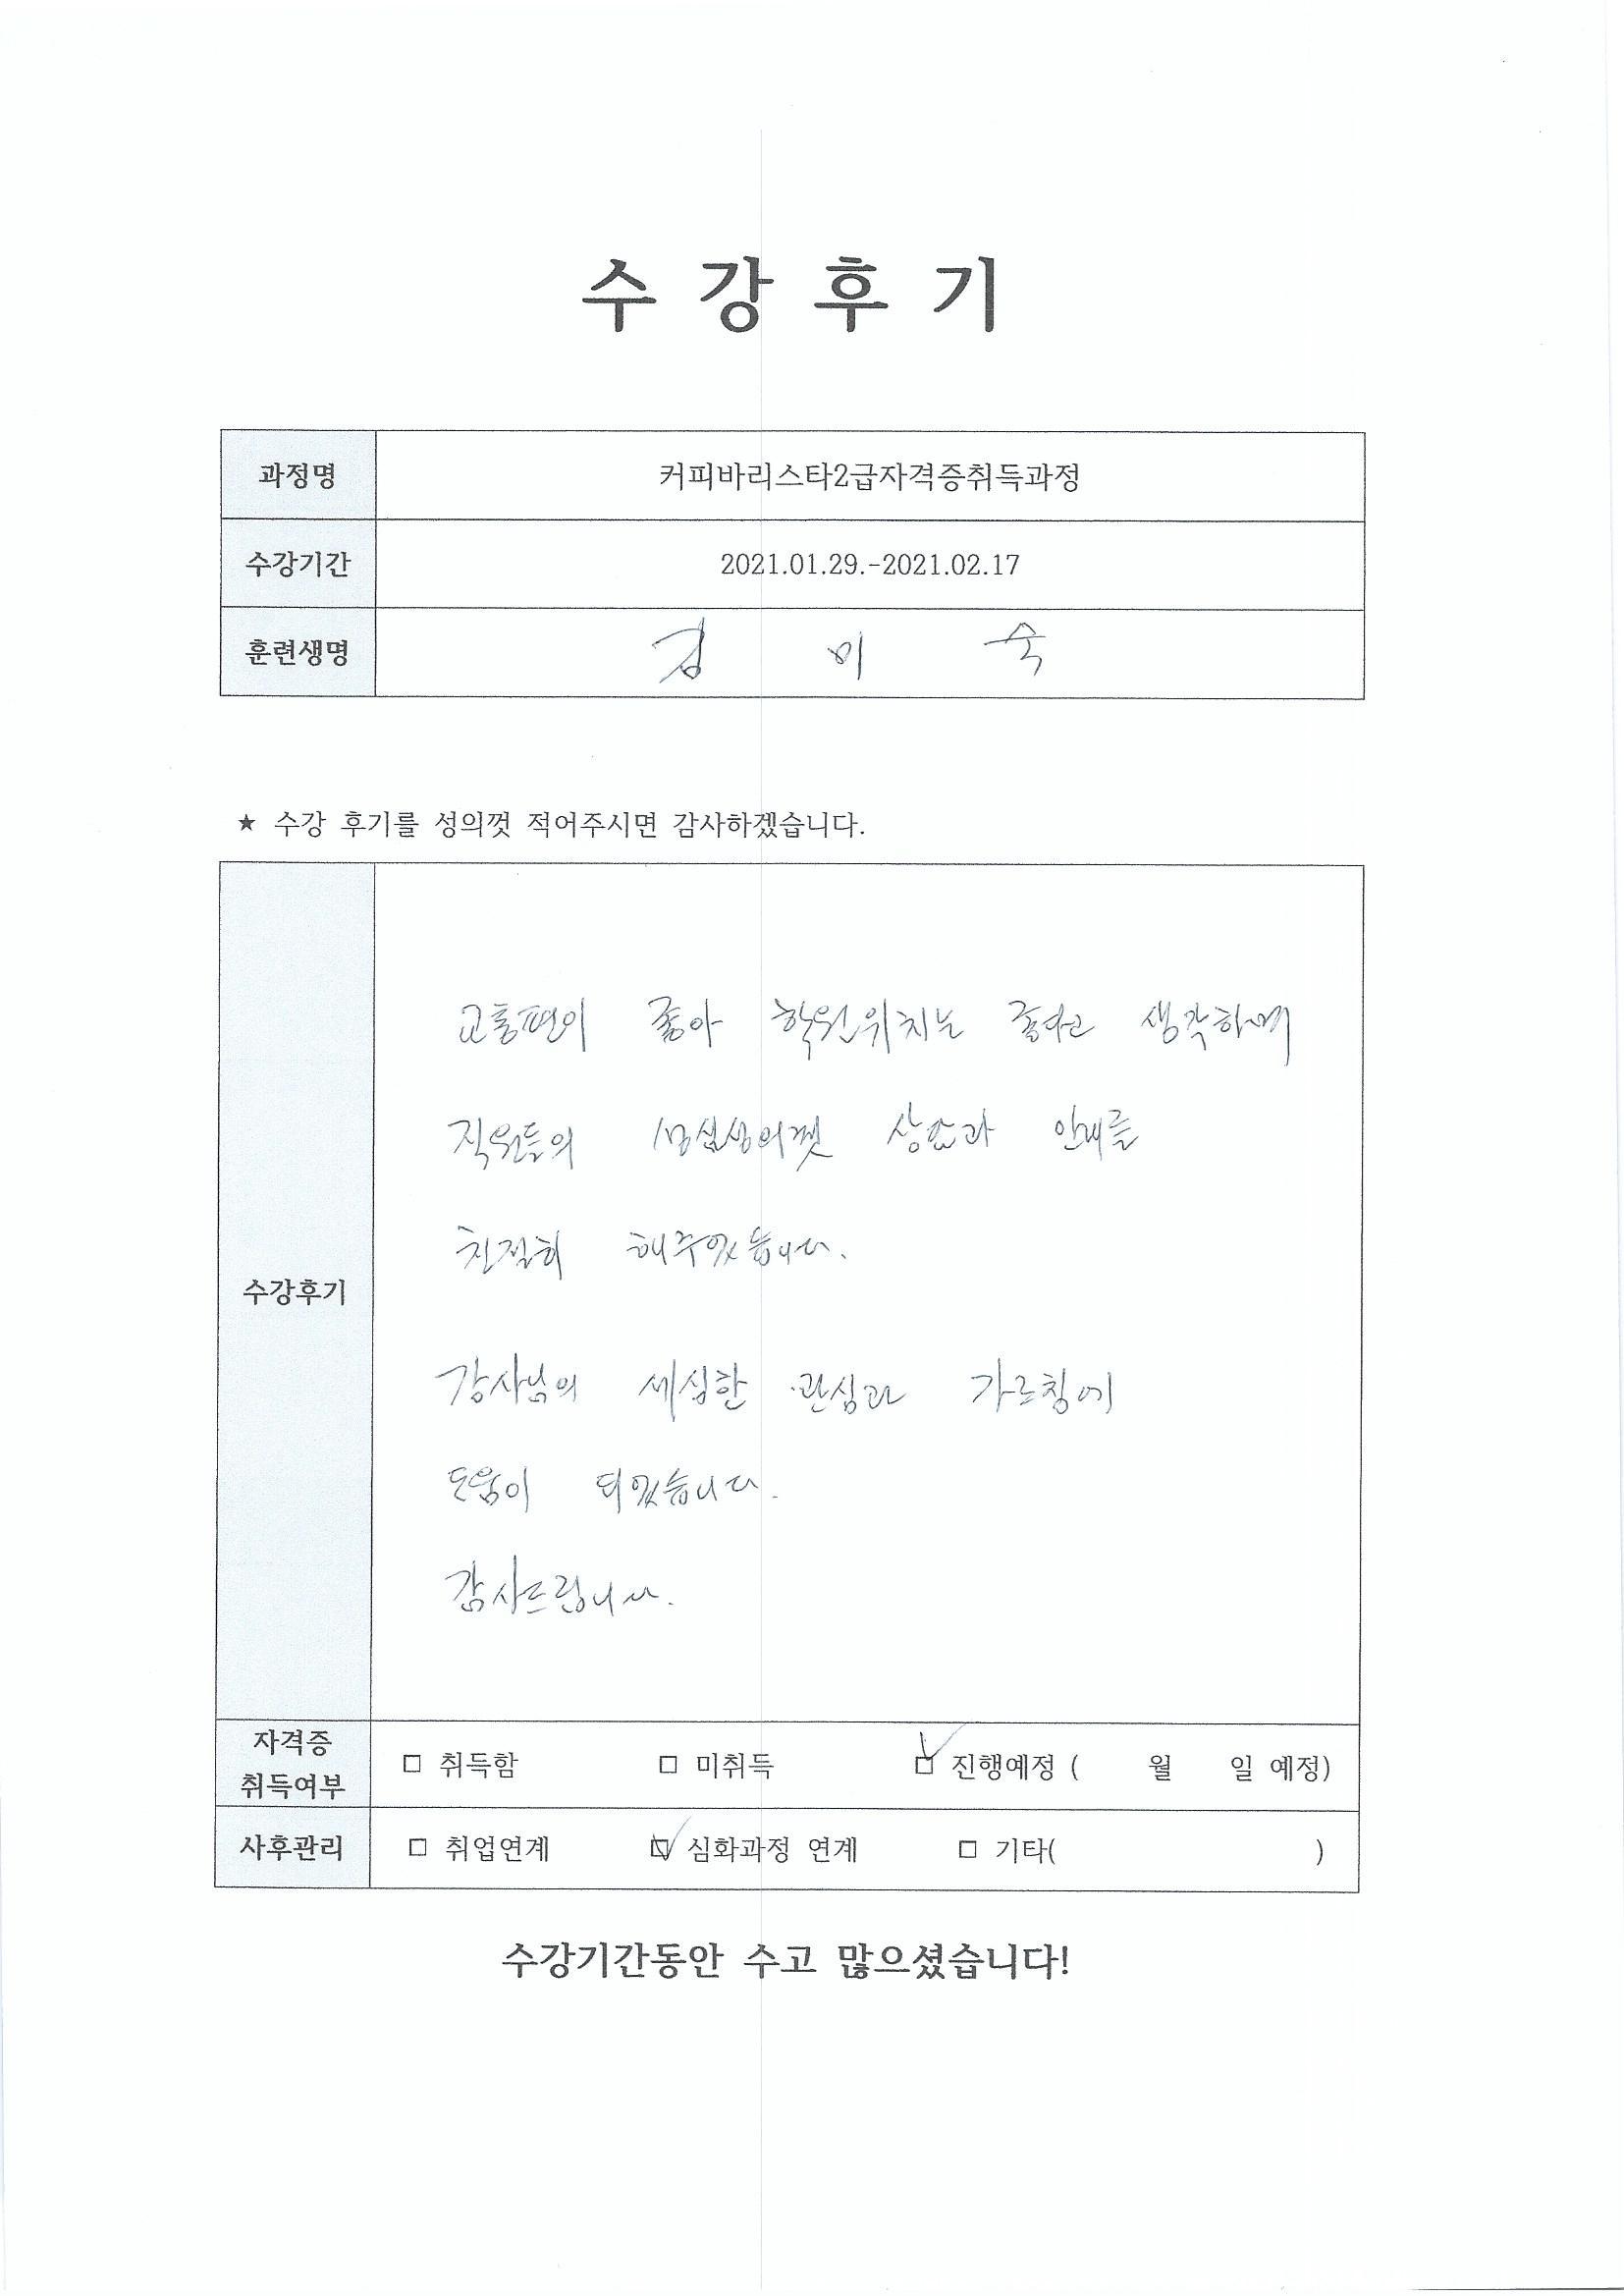 수 강 후 기
과정명 커피바리스타2급자격증취득과정
수강기간 2021.01.29.-2021.02.17
훈련생명 김 미 숙
★ 수강 후기를 성의껏 적어주시면 감사하겠습니다.
수강후기
교통편이 좋아 학원위치는 좋다고 생각하며
직원들의 성심성의껏 상담과 안내를
친절히 해주었습니다.
강사님의 세심한 관심과 가르침에
도움이 되었습니다.
감사드립니다.
자격증
취득여부
□ 취득함 □ 미취득 ☑ 진행예정 ( 월 일 예정)
사후관리 □ 취업연계 ☑ 심화과정 연계 □ 기타( )
수강기간동안 수고 많으셨습니다!